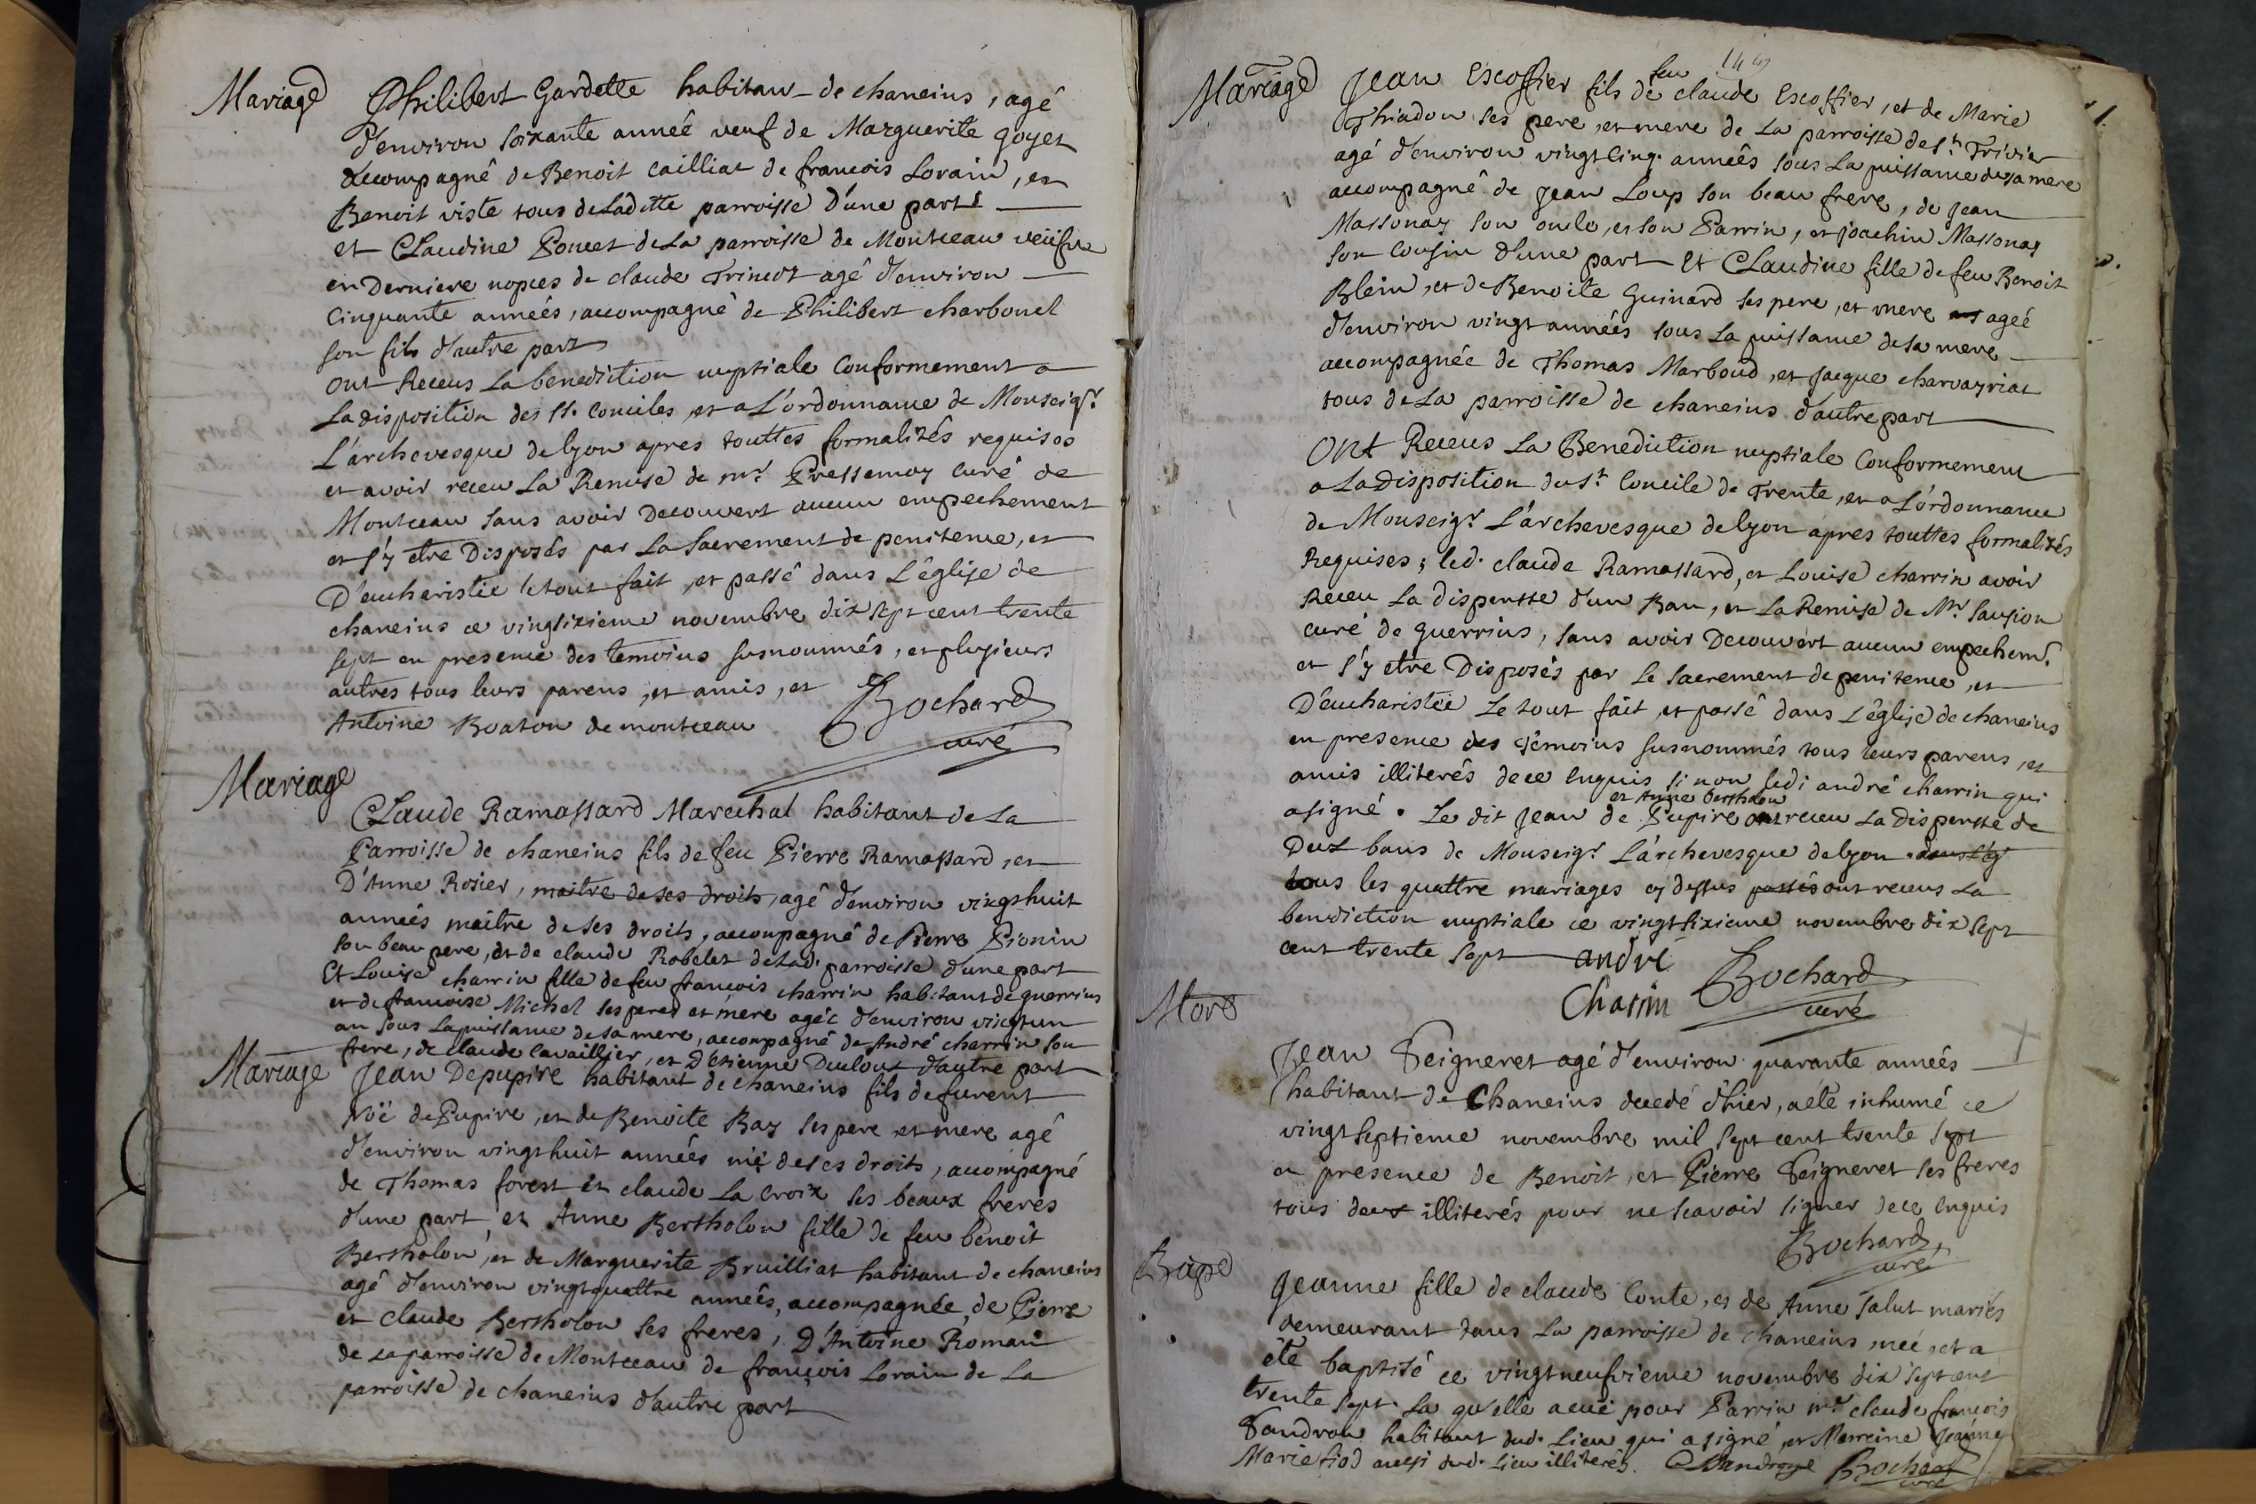 Mariage
Philibert Gardette habitant de chaneins, agé
d'environ soixante année veuf de Marguerite goyet
accompagné de Benoit cailliat de francois Lorain, et
Benoit viste tous de Ladette parroisse d'une part
et Claudine Poncet de La parroisse de Montceau veufve
en Derniere nopces de claude Trincot agé d'environ
cinquante années, accompagné de Philibert charbonel
son fils d'autre part
ont Receus La benediction nuptiale conformement a
La disposition des SS. conciles, et a L'ordonnance de Monseigr.
L'archevesque de lyon apres touttes formalités requises
et avoir receu La Remise de mr. Pressemoy curé de
Montceau sans avoir Decouvert aucun empechement
et s'y etre Disposés par La Sacrement de penitence, et
D'eucharistie le tout fait, et passé dans L'église de
chaneins ce vingtsixieme novembre dix sept cent trente
sept en presence des temoins susnommés, et plusieurs
autres tous leurs parens, et amis, et
Antoine Boaton de montceau
Bochard
curé
Mariage
CLaude Ramassard Marechal habitant de La
Parroisse de chaneins fils de feu Pierre Ramassard, et
D'Anne Rosier, maitre de ses droits, agé d'environ vingthuit
années maître de ses droits, accompagné de Pierre Pionin
son beau pere, et de claude Robelet de Lad. parroisse d'une part
Et Louise charrin fille de feu francois charrin habitant de guerrins
et de francoise Michel ses pere et mere agée d'environ vingtun
an sous La puissance de sa mere, accompagné de André charrin son
frere, de claude Cavaillier, et D'etienne Duclout d'autre part
Mariage
Jean Depupire habitant de chaneins fils de furent
Noë de Pupire, et de Benoite Bay ses pere et mere agé
d'environ vingthuit années me de ses droits, accompagné
de Thomas forest et claude La croix ses beaux freres
d'une part et Anne Bertholon fille de feu benoît
Bertholon, et de Marguerite Bruilliat habitant de chaneins
agé d'environ vingtquattre années, accompagnée, de Pierre
et claude Bertholon ses freres, D'Antoine Roman
de La parroisse de Montceau de françois Lorain de La
parroisse de chaneins d'autre part
Mariage
Jean Escoffier fils de feu claude Escoffier, et de Marie
Thiadon ses pere, et mere de La parroisse de St. Trivier
agé d'environ vingtcinq. années sous La puissance de sa mere
accompagné de Jean Loup son beau frere, de Jean
Massonay son oncle, et son Parrin, et joachin Massonay
son cousin d'une part Et CLaudine fille de feu Benoit
Blein, et de Benoite Guinard ses pere, et mere agée
d'environ vingt années sous La puissance de sa mere
accompagnée de Thomas Marboud, et jacque charvayriat
tous de La parroisse de chaneins d'autre part
Ont Receus La Benediction nuptiale conformement
a La disposition du St. Concile de Trente, et a L'ordonnance
de Monseigr. L'archevesque de lyon apres touttes formalités
Requises; led. claude Ramassard, et Louise charrin avoir
Receu La dispensse d'un Ban, et La Remise de Mr. Saugion
curé de guerrins, sans avoir Decouvert aucun empechemt.
et s'y etre Disposés par Le sacrement de penitence, et
D'eucharistie Le tout fait, et passé dans L'église de chaneins
en presence des temoins susnommés tous leurs parens, et
amis illiterés de ce Enquis si non ledi andré charrin qui
asigné. Le dit Jean de Pupire et Anne bertholon ont receu La dispensse de
Deux bans de Monseigr. L'archevesque de lyon.
tous les quattre mariages cy dessus passés ont receus La
benediction nuptiale ce vingtsixieme novembre dix sept
cent trente sept
andré
Charin
Bochard
curé
Mort
Jean Seigneret agé d'environ quarante années
habitant de Chaneins decedé d'hier, aété inhumé ce
vingtseptieme novembre mil sept cent trente sept
en presence de Benoit, et Pierre Seigneret ses freres
tous deux illiterés pour ne scavoir signer de ce Enquis
Bochard,
curé
Bape
Jeanne fille de claude Conte, et de Anne Salut mariés
demeurant dans La parroisse de chaneins, née, et a
été baptisé ce vingtneufvieme novembre dix sept cent
trente sept. La qu'elle a eüe pour Parrin mr. claude françois
Vandron habitant dud. Lieu qui asigné, et Marreine Jeanne
Marie fiod aussi dud. Lieu illiterés.
Bochard
curé